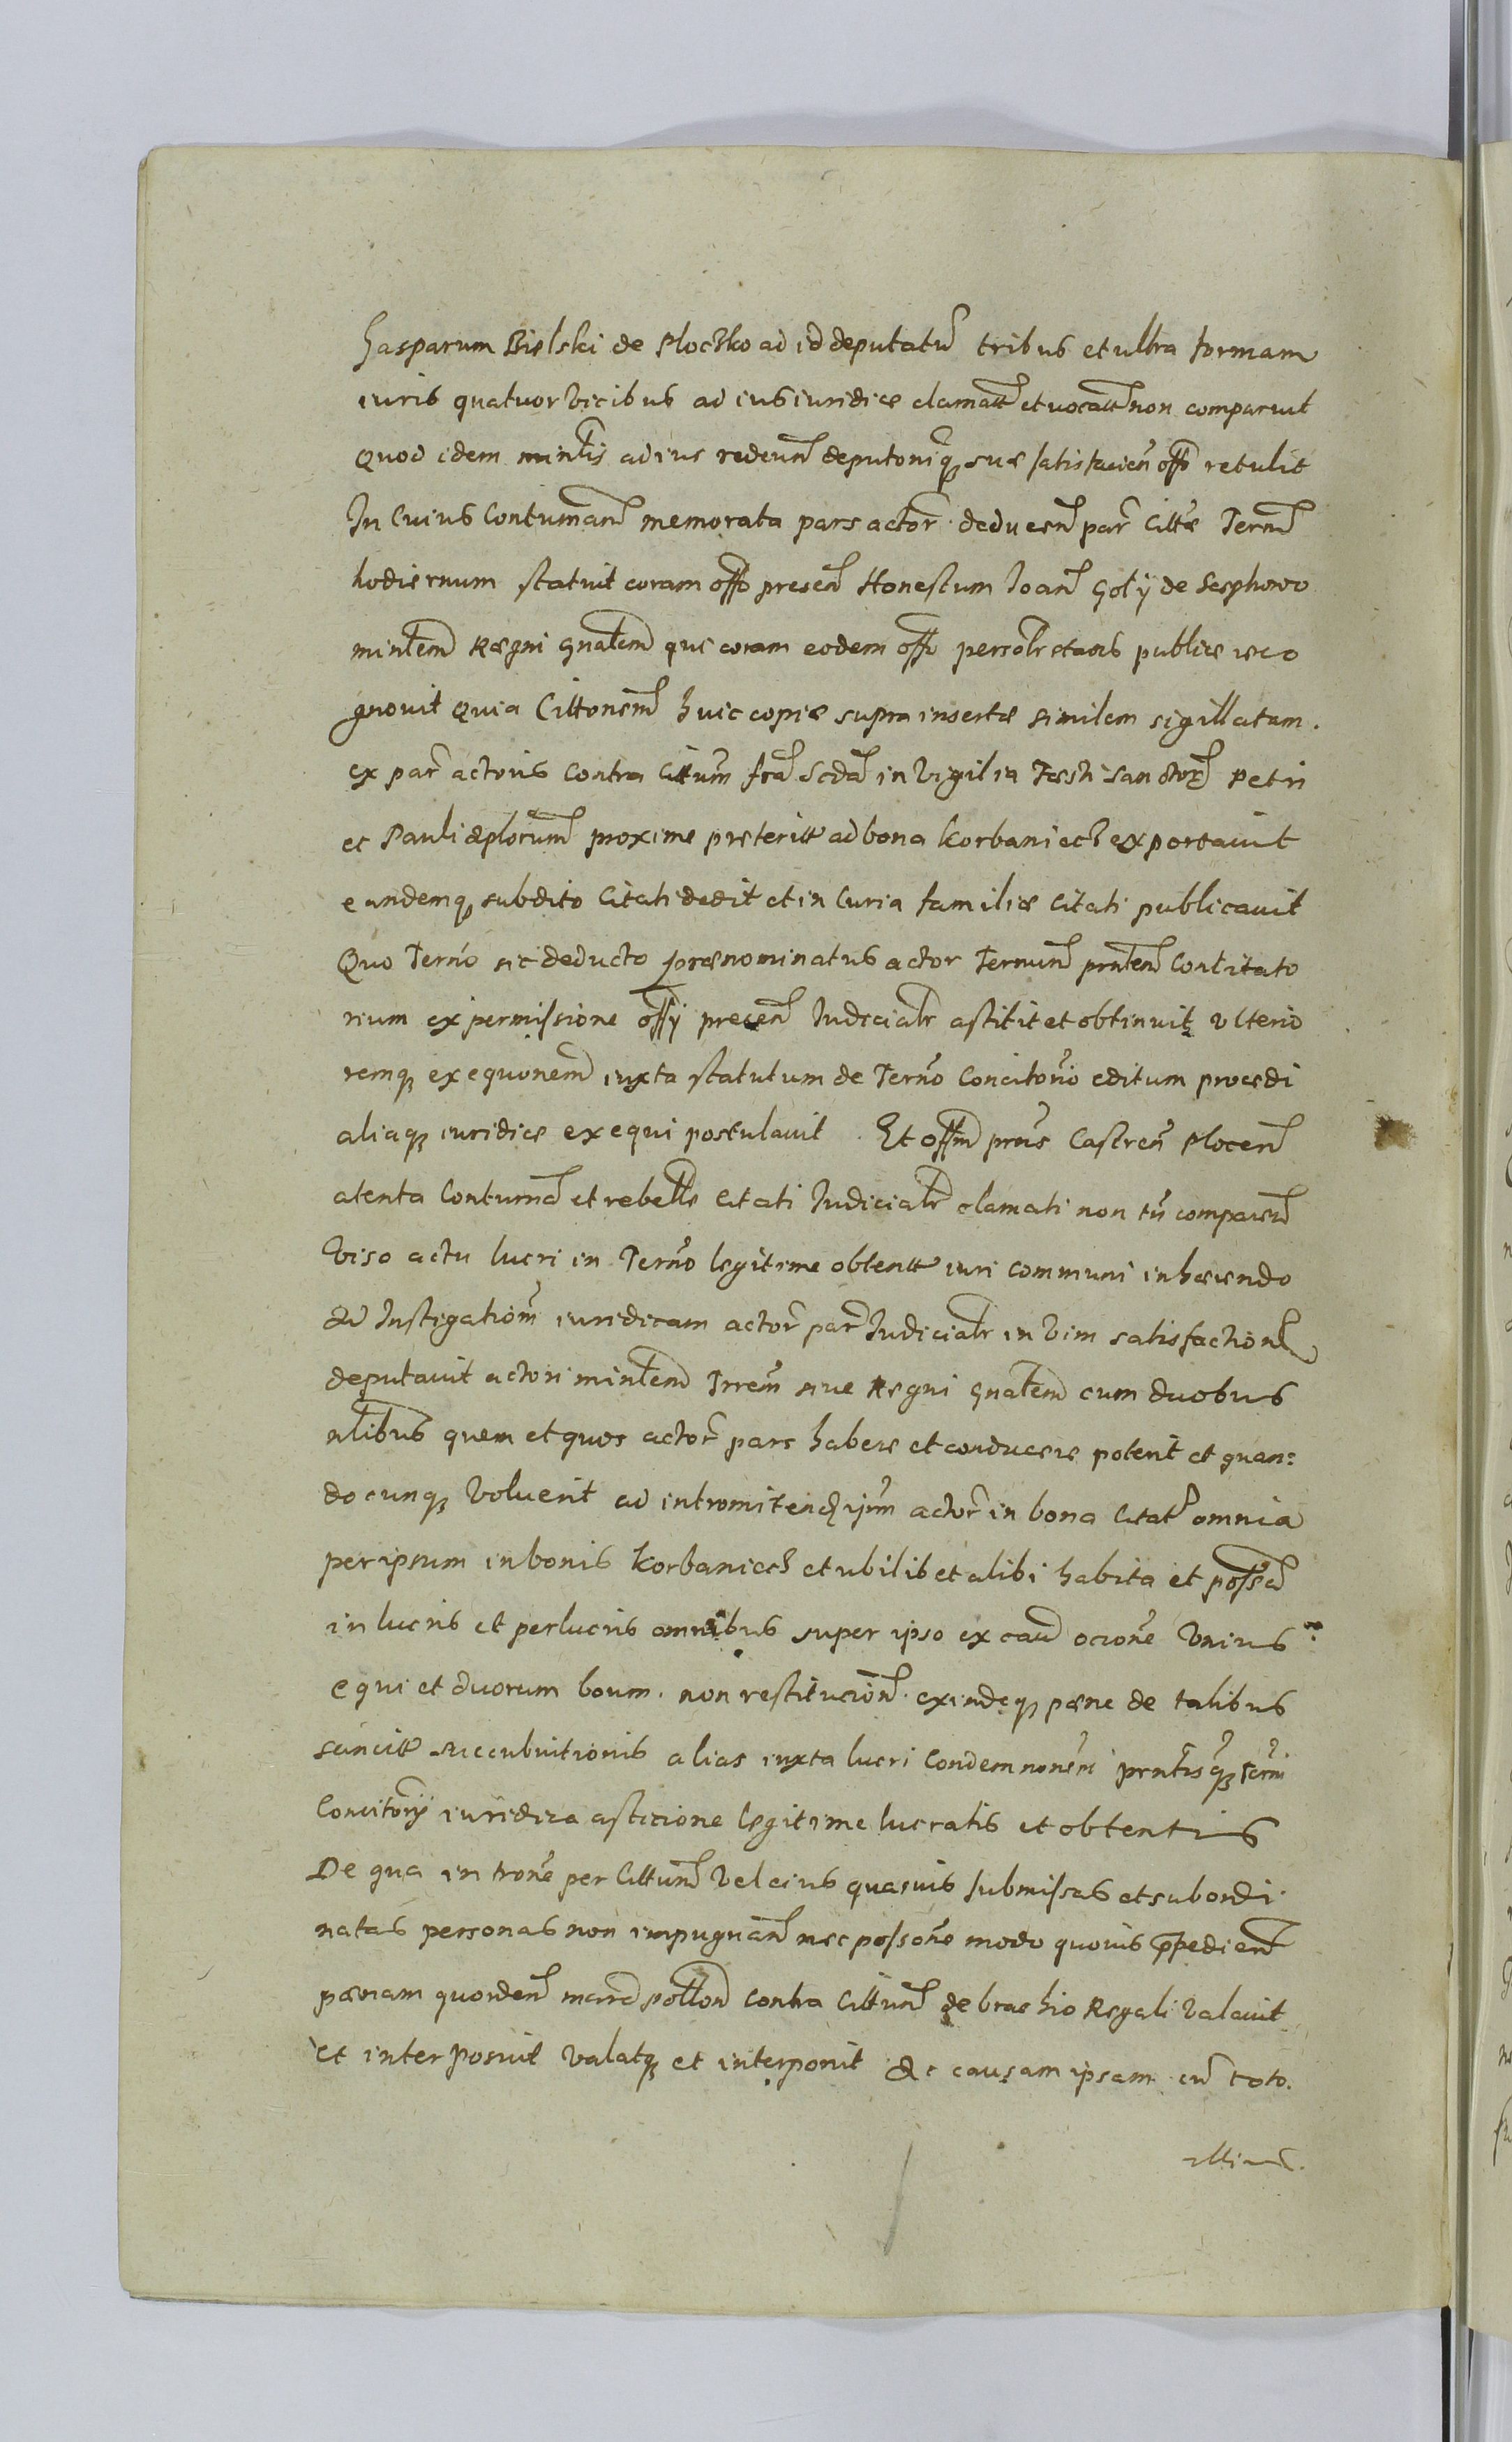 Gasparum Bielski de Ploczko ad id deputatũ tribus et ultra formam
iuris quatuor vicibus ad ius iuridice clamatt̃ et vocatt̃ non comparuit
Quod idem mintl̃is ad ius redeuñ deputoniq̃ suæ satisfacieñ offõ retulit
In Cuius Contumaciañ memorata pars actor̃ deduceñ par̃ Cittæ Termĩ
hodiernum statuit coram offõ preseñ Honestum Ioañ Goly de Sesphowo
mintl̃em Regni gnãlem qui coram eodem offõ persolr̃ stans publice reco
gnovit Quia Cittonem̃ huic copiæ supra insertæ similem sigillatam.
ex par̃ actoris Contra Cittum̃ fr̃a Scdã in Vigilia Festi Sanctor̃ Petri
et Pauli aplorum̃ proxime preteritt ad bona Korbaniecz exportavit
eandemq̃ subdito Citati dedit et in Curia familiæ Citati publicavit
Quo Termño sic deducto prænominatus actor Terminũ pntem̃ Concitato
rium ex permissione offỹ preseñ Iudicialr̃ astitit et obtinuit ulterio
remq̃ exequonem̃ iuxta statutum de Termño Concitorĩo editum procedi
aliaq̃ iuridice exequi postulavit. Et offm̃ prñs Castreñ Ploceñ
atenta Contumã et rebelle Citati Iudicialr̃ clamati non tñ compareñ
Viso actu lucri in Termño legitime obtentt iuri communi inhærendo
Ad Instigationm̃ iuridicam actor̃ par̃ Iudicialr̃ in vim satisfactionis
deputavit actori mintl̃em Trrem̃ sive Regni gnãlem cum duobus
nl̃ibus quem et quos actor̃ pars habere et conducere poterit et quan=
docunq̃ voluerit ad intromitend̃ ipm̃ actor̃ in bona Citatĩ omnia
per ipsum in bonis Korbaniecz et ubilibet alibi habita et possẽa
in lucris et perlucris omnibus super ipso ex caus̃ ocione Unius
equi et duorum boum. non restitucioñ. exindeq̃ pæne de talibus
sancitt succubuitionis alias iuxta lucri Condemnonem̃ prntĩsq̃ termĩ
Concitorỹ iuridica asticione legitime lucratis et obtentis
De qua introñe per Cittum̃ vel eius quasvis submissas et subordi
natas personas non impugnañ nec possoñe modo quovis p̃pedieñ
pænam quordeñ marc̃ pollõ contra Cittum̃ de brachio Regali valavit
et interposuit valatq̃ et interponit Ac causam ipsam cũ toto.